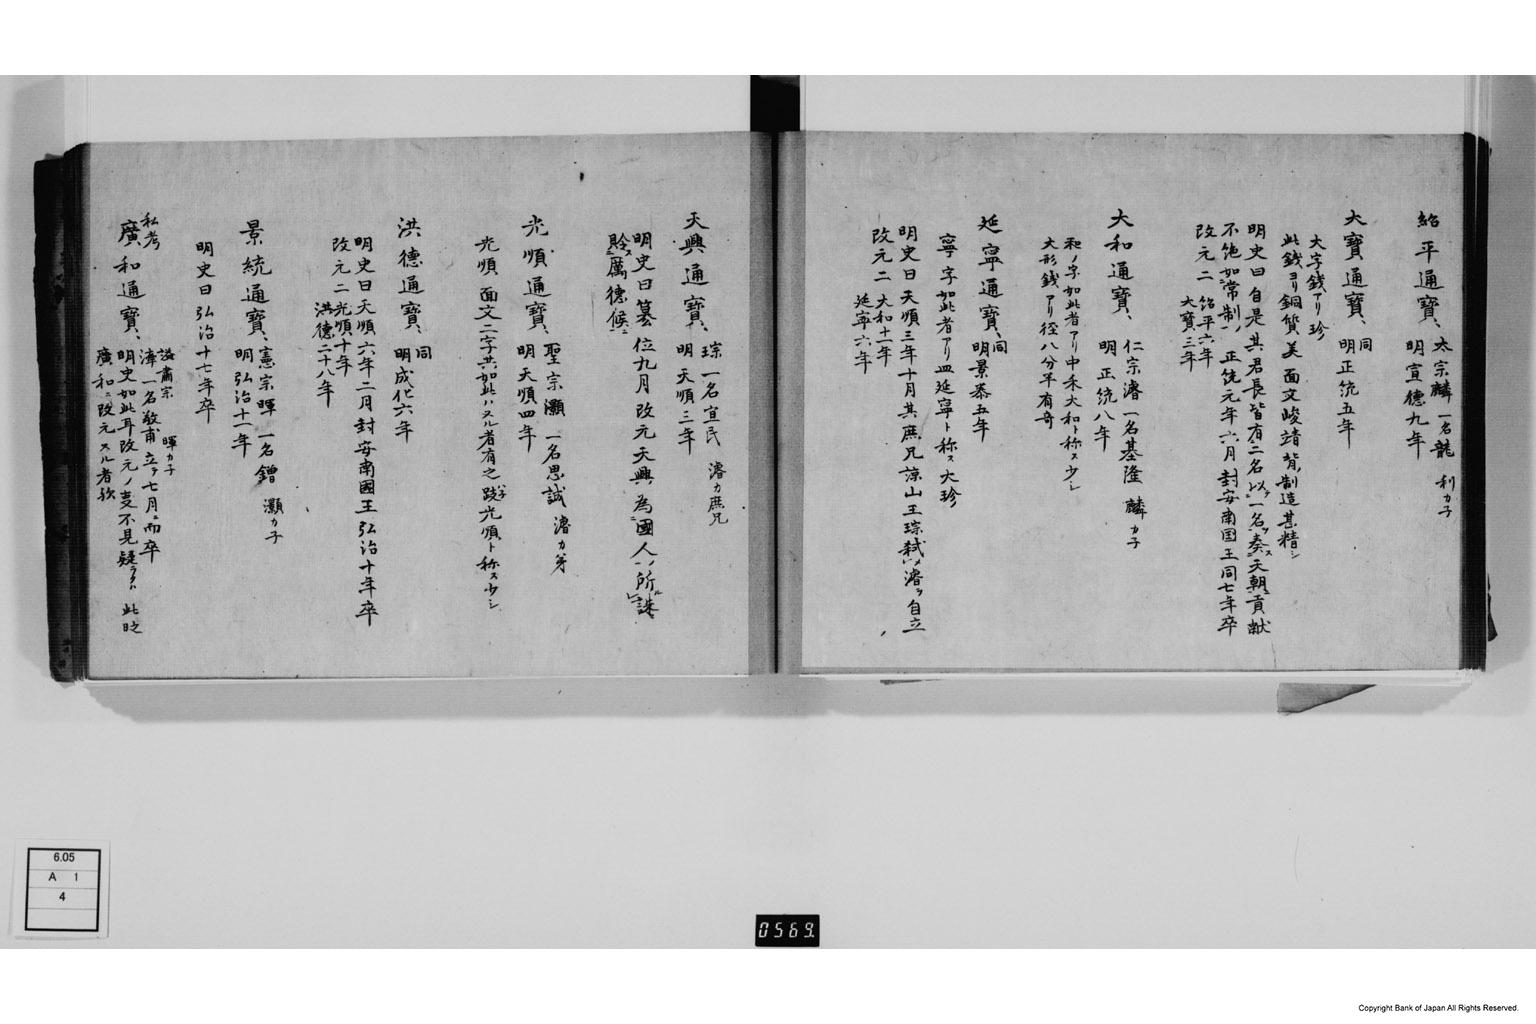 紹平通寶、太宗麟 一名龍 利カ子
明宣德九年
大寶通寶、同
明正統五年
大字錢アリ珍
此錢ヨリ銅質美面文峻靖背製造甚精シ
明史曰自是其君長皆有二名以一名奏天朝貢献
不絶如常制正統元年六月封安南国王同七年卒
改元二 紹平六年
大寶三年
大和通寶、仁宗濬 一名基隆 麟カ子
明正統八年
和ノ字如此者アリ中禾大和ト称ス少シ
大形錢アリ径八分半有奇
延寧通寶、同
明景泰五年
寧字如此者アリ皿延寧ト称ス大珍
明史曰天順三年十月其庶兄諒山王琮弑濬ヲ自立
改元二 大和十一年
延寧六年
天興通寶、琮一名宜民 濬カ庶兄
明天順三年
明史曰簒位九月改元天興為國人所誅
貶厲德候
光順通寶、聖宗灝 一名思誠 濬カ弟
明天順四年
光順面文二字共如此ハヌル者有之跋光順ト称ス少シ
洪德通寶、同
明成化六年
明史曰天順六年二月封安南國王弘治十年卒
改元二光順十年
洪德二十八年
景統通寶、憲宗暉 一名鏳 灝カ子
明弘治十一年
明史曰弘治十七年卒
私考
廣和通寶、諡肅宗 暉カ子
㵮一名敬甫立テ七月ニ而卒
明史如此耳改元ノ支不見疑ラクハ此时
廣和ニ改元スル者欤
6.05
A 1
4
0569
Copyright Bank of Japan All Rights Reserved.